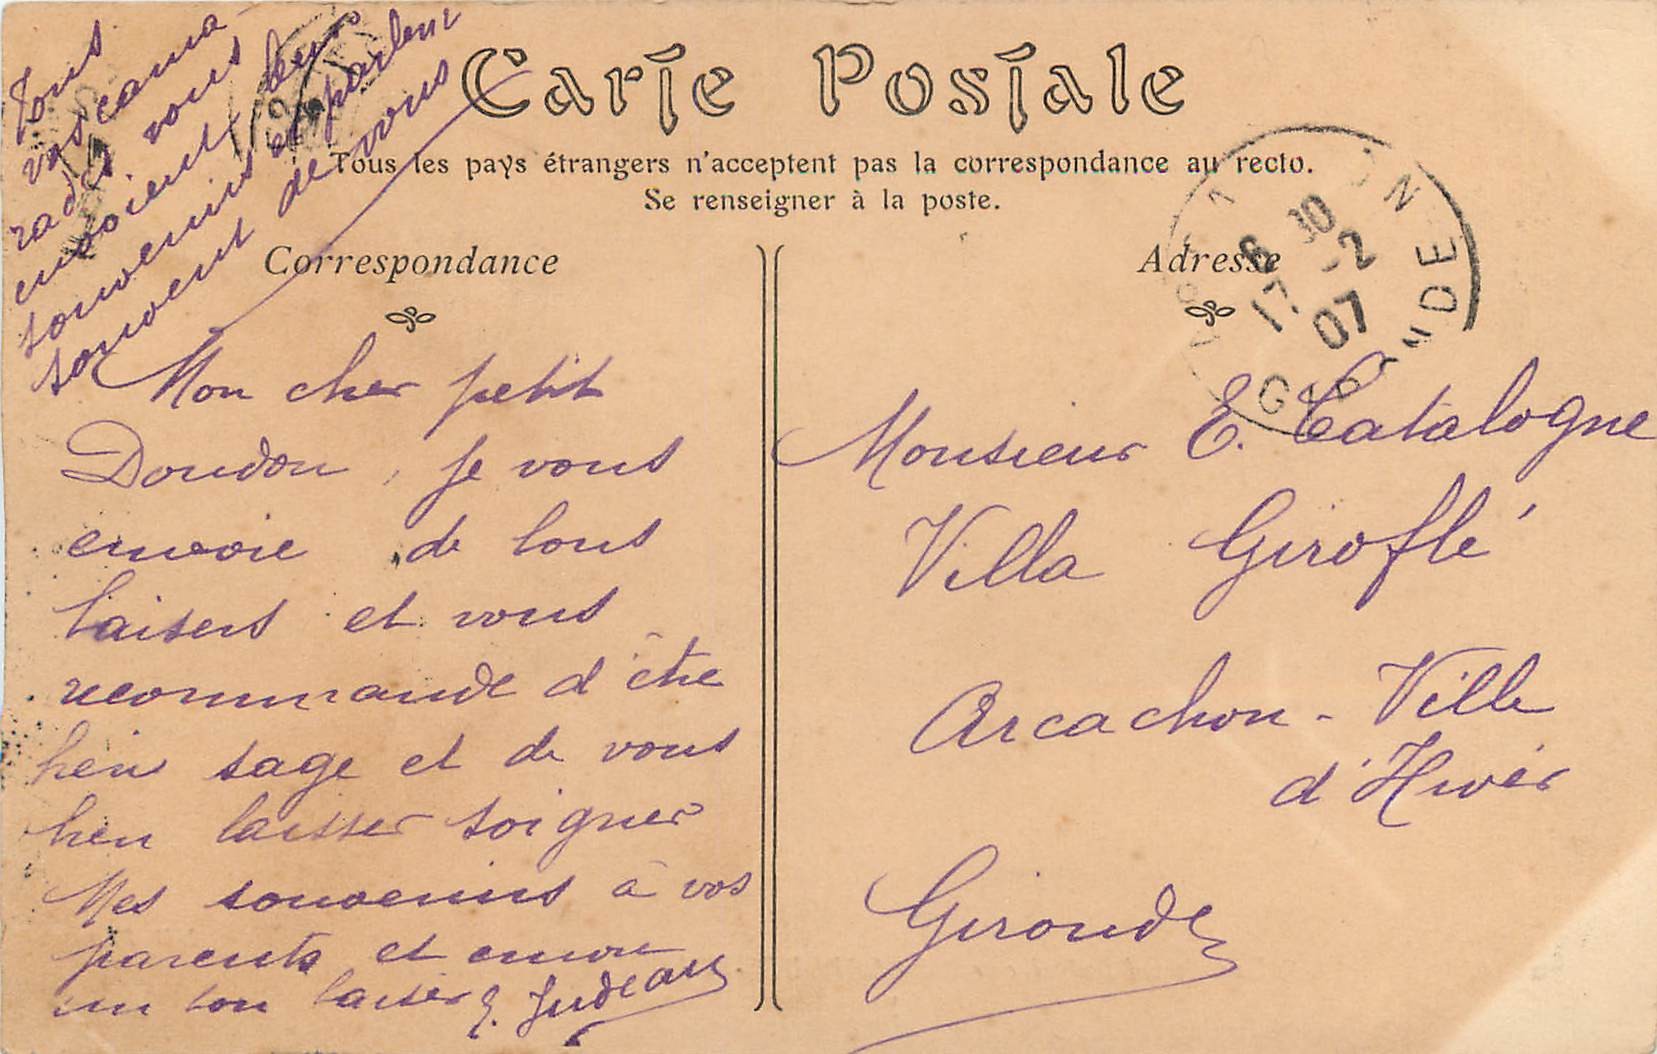 Carte Postale
Tous les pays étrangers n'acceptent pas la correspondance au recto.
Se renseigner à la poste.
Correspondance
Adresse
Mon cher petit
Doudou, je vous
envoie de bons
baisers et vous
recommande d'être
bien sage et de vous
bien laisser soigner
Mes souvenirs à vos
parents et encore
un bon baiser E. Judeaux
Tous
vos cama-
rades vous
envoient leurs
souvenirs et parlent
souvent de vous
Monsieur E. Catalogne
Villa Giroflé
Arcachon - Ville
d'Hiver
Gironde
17 -2
07